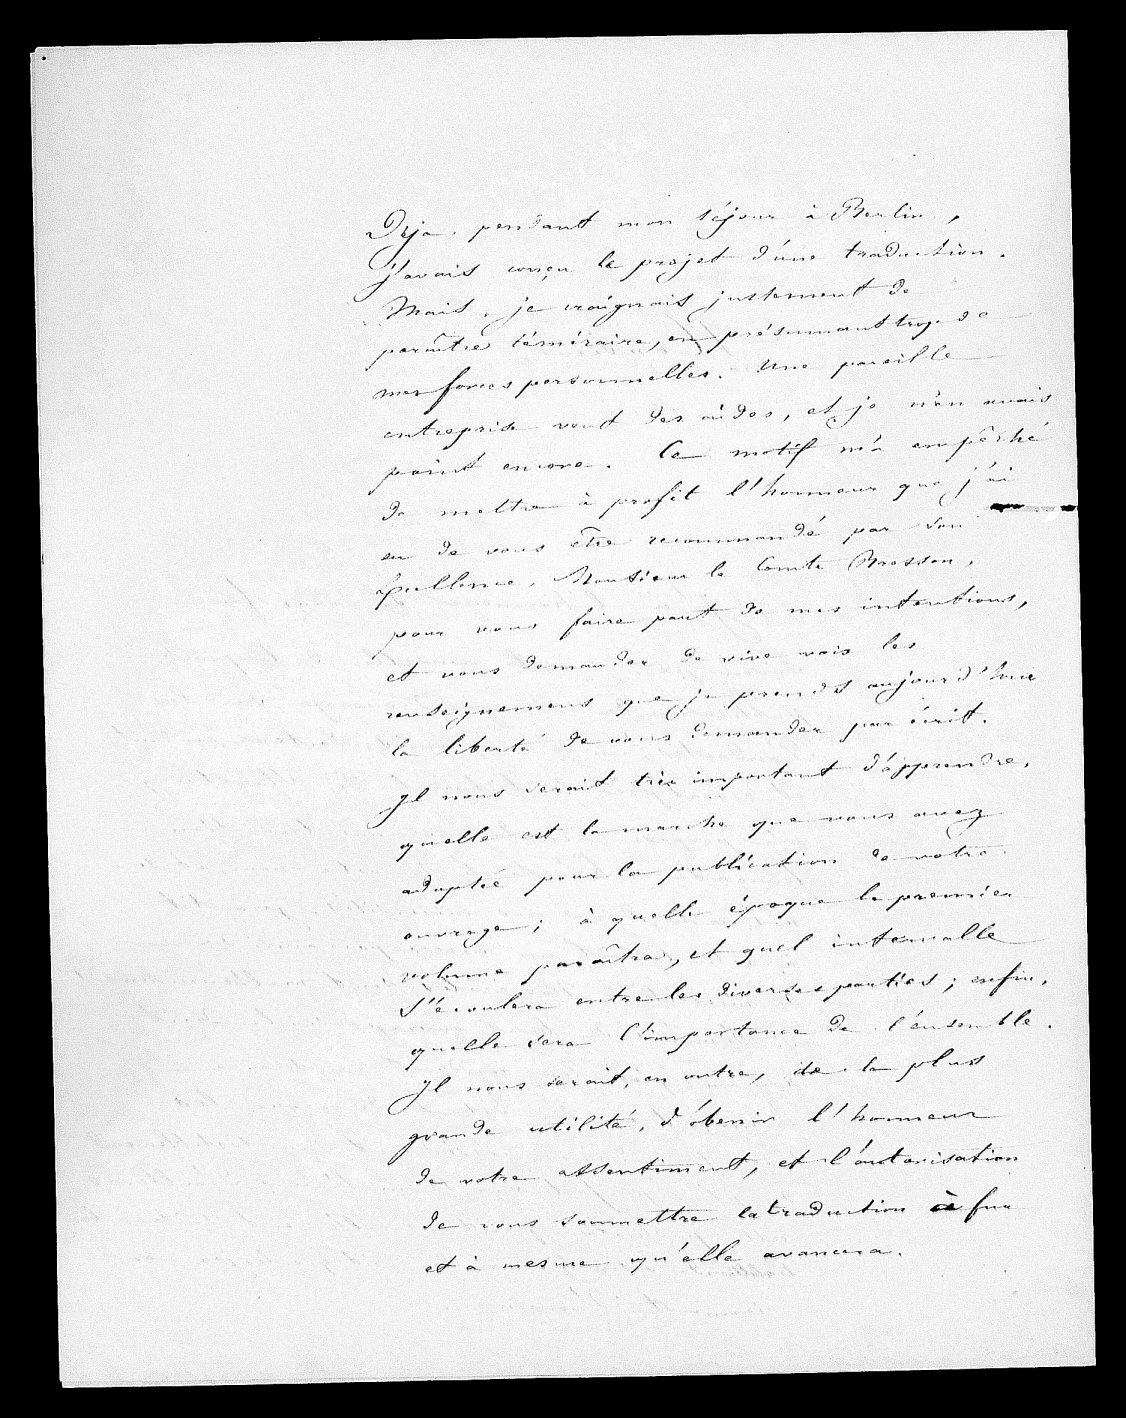 Déja pendant mon séjour à Berlin,
j'avais conçu le projet d'une traduction.
Mais, je craignais justement de
paraître téméraire, en présumant trop de
mes forces personnelles. Une pareille
entreprise veut des aides, et je n'en avais
point encore. Ce motif m'a empêché
de mettre à profit l'honneur que j'ai
eu de vous être recommandé par Son
Excellence, Monsieur le Comte Bresson,
pour vous faire part de mes intentions,
et vous demander de vive voix les
renseignemens que je prends aujourd'hui
la liberté de vous demander par écrit.
Il nous serait très important d'apprendre,
quelle est la marche que vous avez
adoptée pour la publication de votre
ouvrage; à quelle époque le premier
volume paraîtra, et quel intervalle
s'écoulera entre les diverses parties; enfin,
quelle sera l'importance de l'ensemble.
Il nous serait, en outre, de la plus
grande utilité, d'obtenir l'honneur
de votre assentiment, et l'autorisation
de vous soumettre la traduction à fur
et à mesure qu'elle avancera.